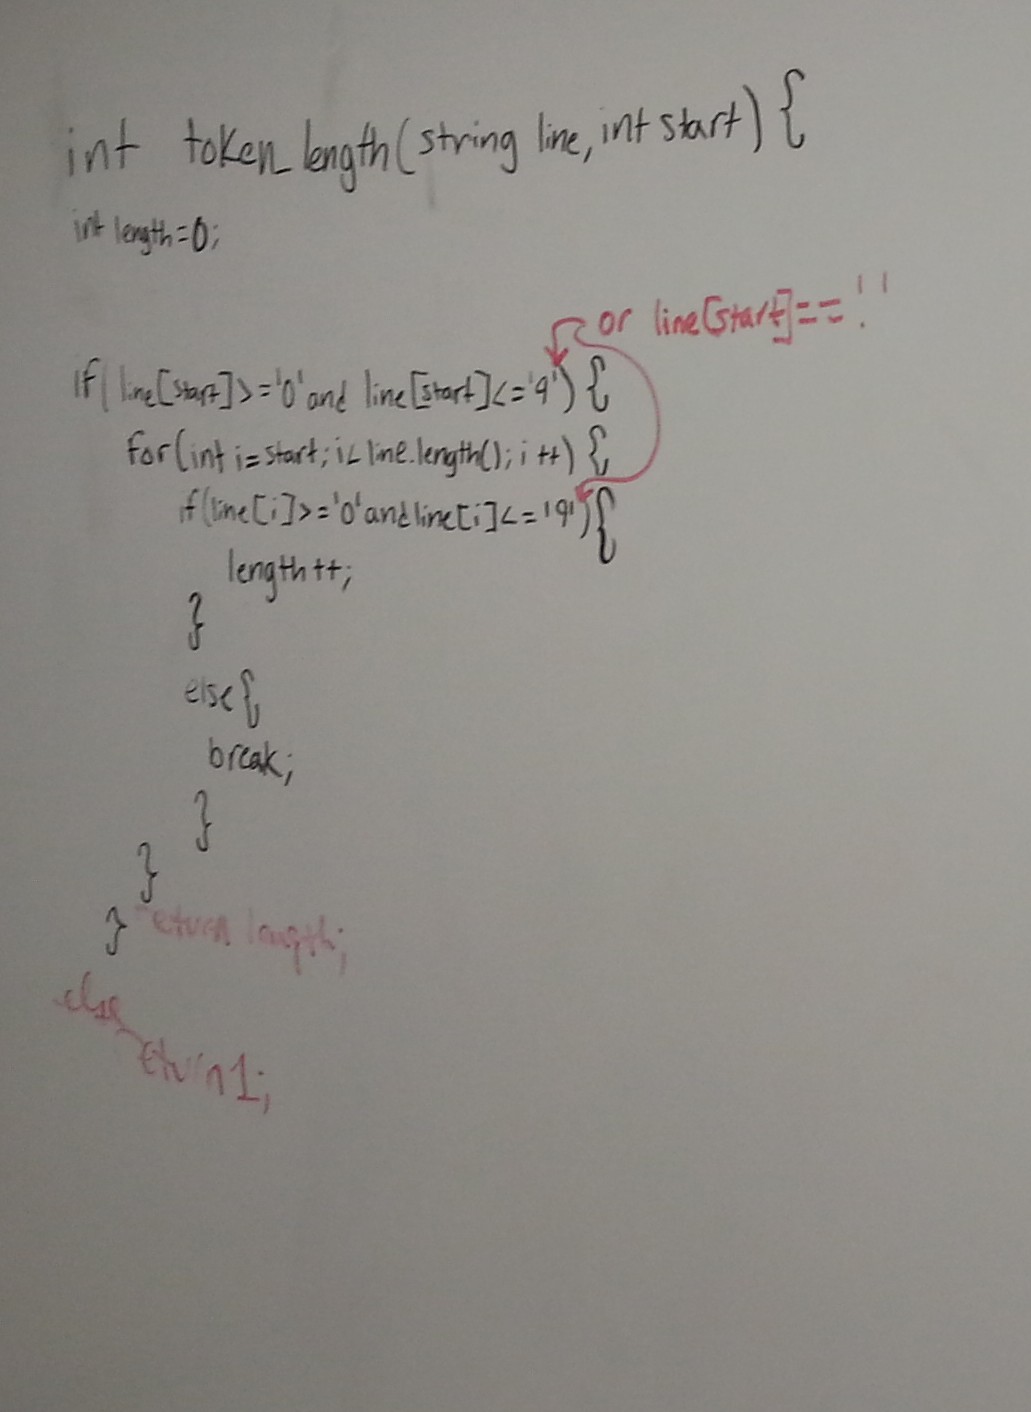 int token_length(string line, int start) {
int length=0;
or line[start]=='.'
if( line[start]>='0' and line[start]<='9') {
for(int i=start; i< line.length(); i++) {
if(line[i]>='0' and line[i]<='9'){
length++;
}
else{
break;
}
}
} return length;
else
return 1;